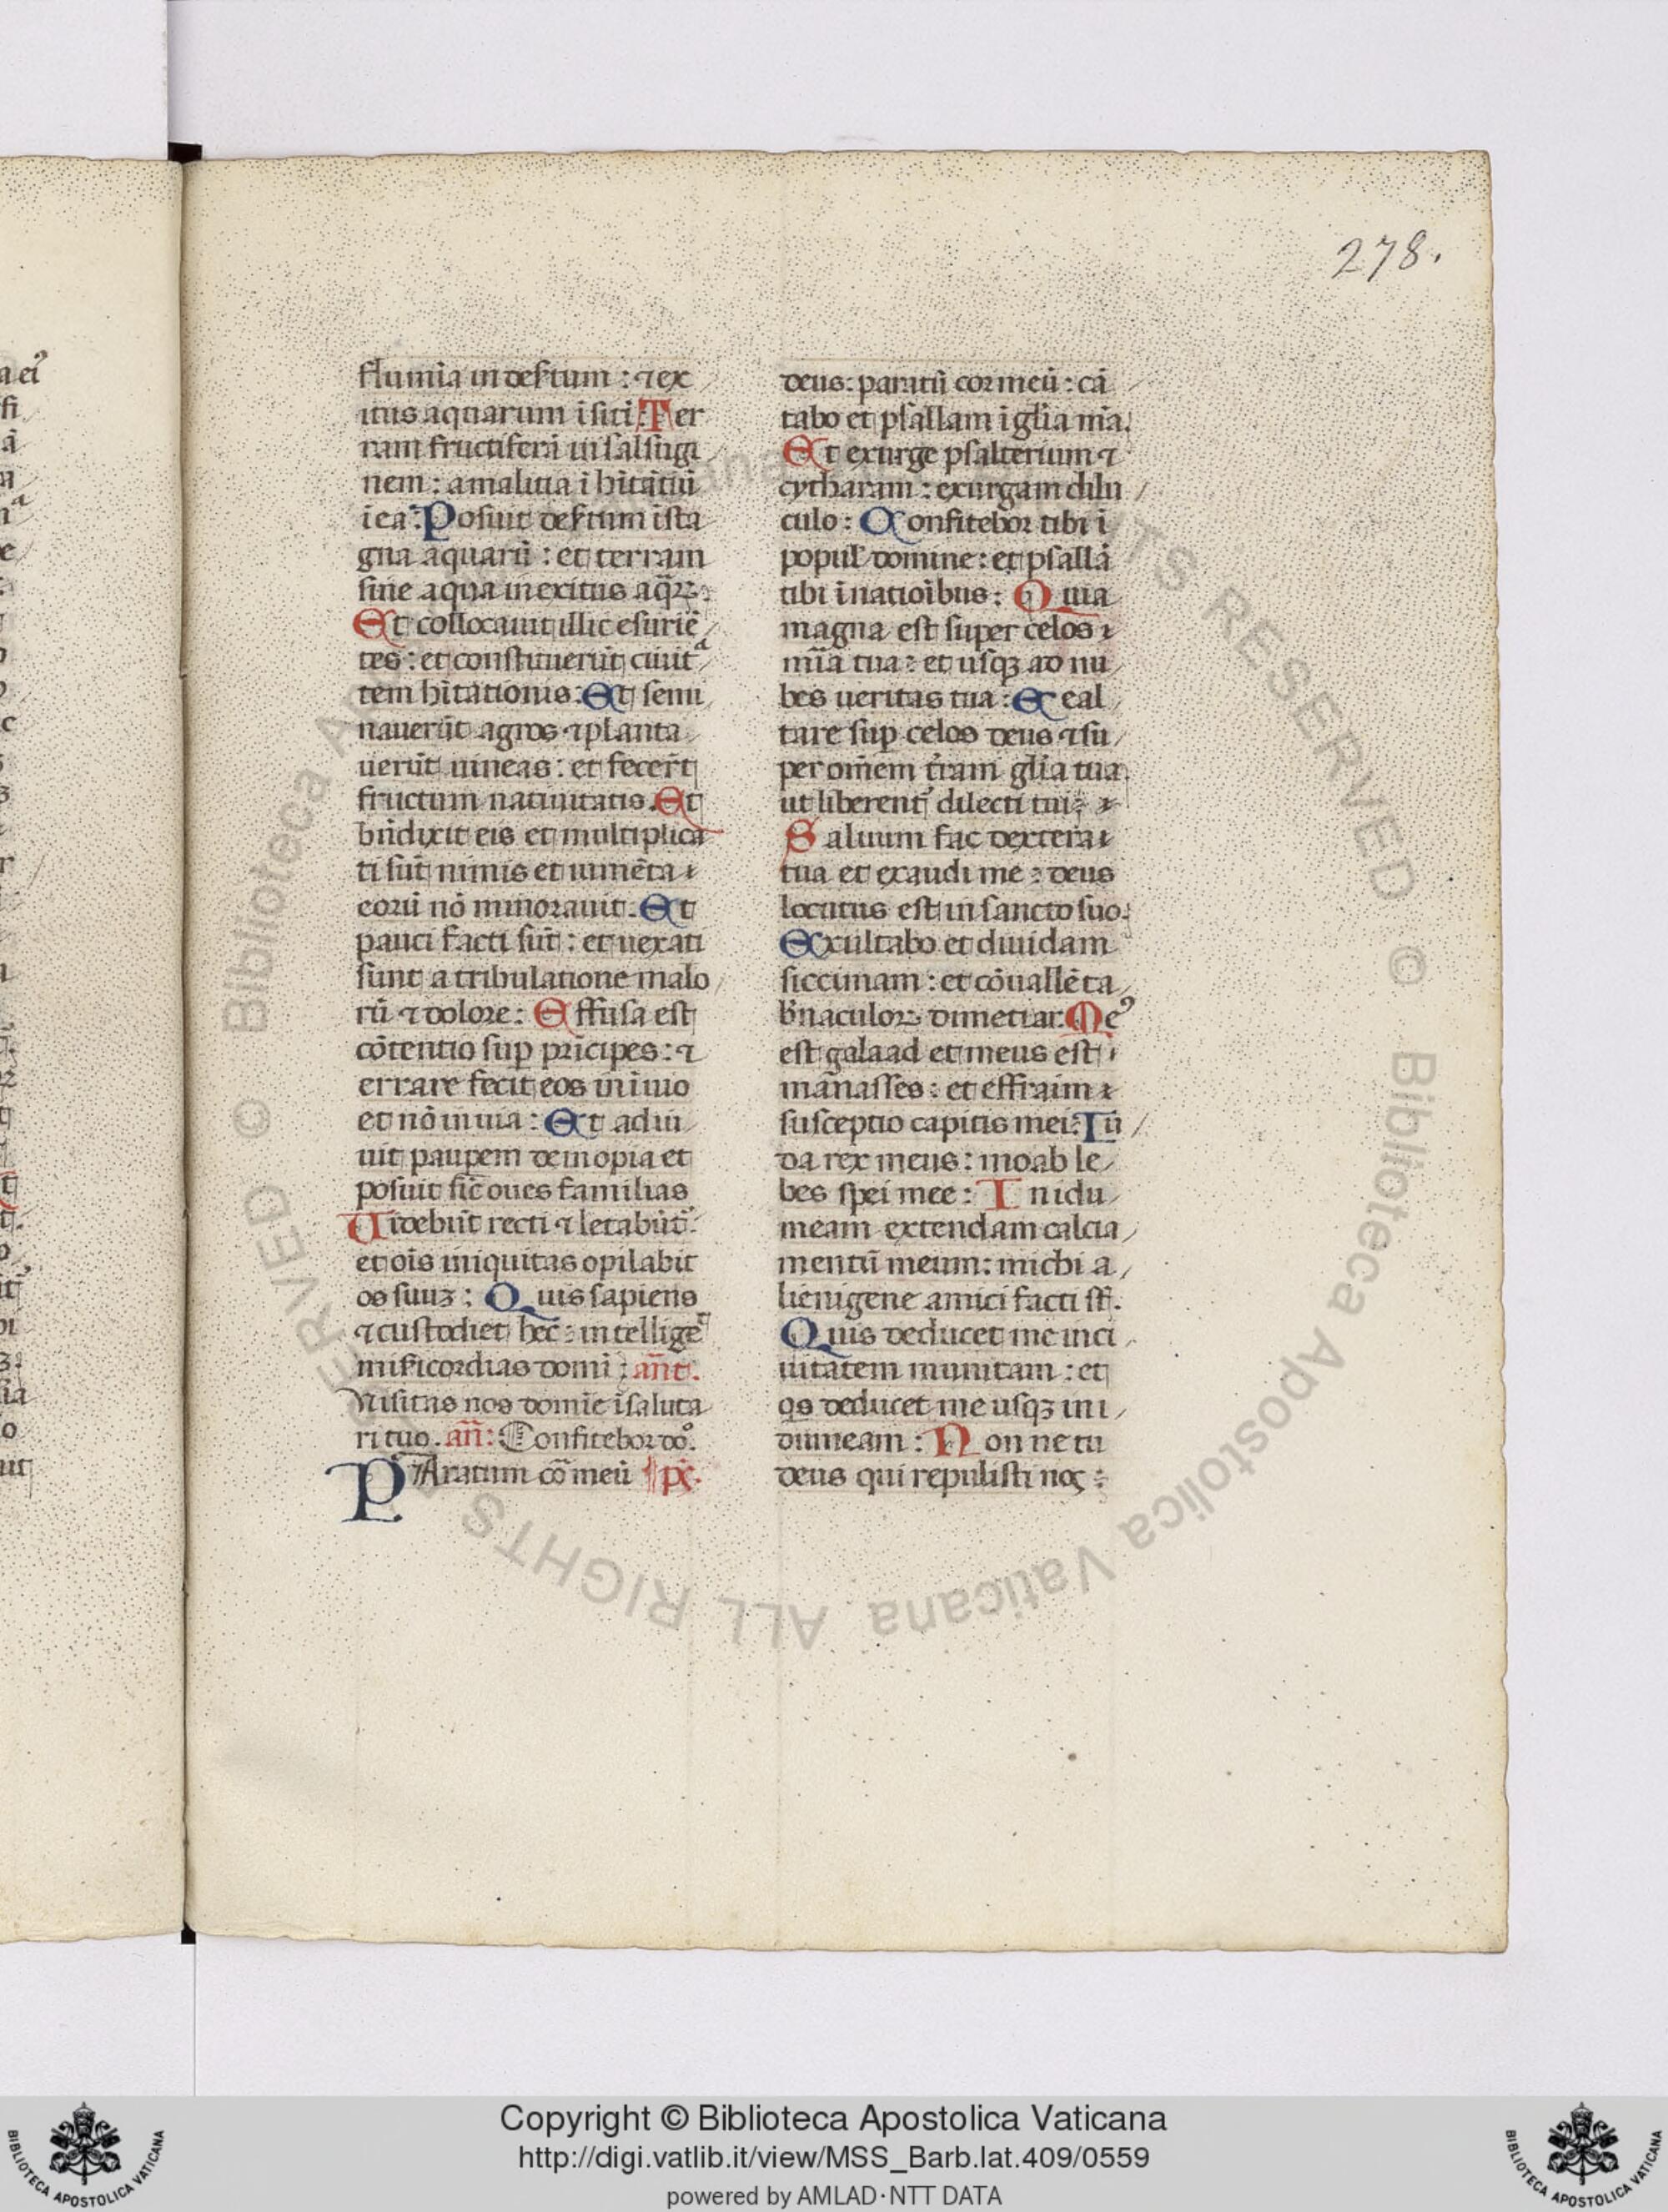 278.
flumīa in deẜtum : ⁊ ex
itus aquarum ī siti: Ter
ram fructiferā in salsugi
nem : a malitia ī hītātiū
i ea: Posuit deẜtum ī sta
gna aquarū : et terram
sine aqua in exitus aq̄ꝝ:
Et collocauit illic esuriē
tes : et constituerūt ciuitᵃ
tem hītationis: Et semi
nauerūt agros ⁊ planta
uerūt uineas : et fecer̄t
fructum natiuitatis. Et
bn̄dixit eis et multiplica
ti sūt nimis et iumēta
eorū nō minorauit. Et
pauci facti sūt : et uexati
sunt a tribulatione malo
rū ⁊ dolore : Effusa est
cōtentio suꝑ prīcipes : ⁊
errare fecit eos in inuio
et nō in uia : Et adiu
uit pauꝑem de inopia et
posuit sic̄ oues familias
Uidebūt recti ⁊ letabūt:
et oīs iniquitas opilabit
os suuꝫ : Quis sapiens
⁊ custodiet hec : intellige᷑
miẜicordias domī : an̄t.
Uisitas nos domīe ī saluta
ri tuo. an̄: Confitebor dō.
PAratum cō meū ps̄.
deus : paratū cor meū : cā
tabo et psallam ī gl̄ia m̄a.
Et exurge psalterium ⁊
cytharam : exurgam dilu
culo : Confitebor tibi ī
popul̓ domine : et psallā
tibi ī natioībus : Quia
magna est super celos
mīa tua : et usqꝫ ad nu
bes ueritas tua : Exal
tare suꝑ celos deus ⁊ su
per om̄em t̄ram gl̄ia tua
ut liberent᷑ dilecti tui :
Saluum fac dextera
tua et exaudi me : deus
locutus est in sancto suo.
Exultabo et diuidam
siccimam : et cōuallē ta
b̄naculoꝝ dimetiar. Meꝰ
est galaad et meus est
manasses : et effraim
susceptio capitis mei: Iu
da rex meus : moab le
bes spei mee : In idu
meam extendam calcia
mentū meum : michi a
lienigene amici facti st̄.
Quis deducet me in ci
uitatem munitam : et
qs deducet me usqꝫ in i
dumeam : Nonne tu
deus qui repulisti nos :
Copyright © Biblioteca Apostolica Vaticana
http://digi.vatlib.it/view/MSS_Barb.lat.409/0559
powered by AMLAD·NTT DATA
BIBLIOTECA APOSTOLICA VATICANA
BIBLIOTECA APOSTOLICA VATICANA